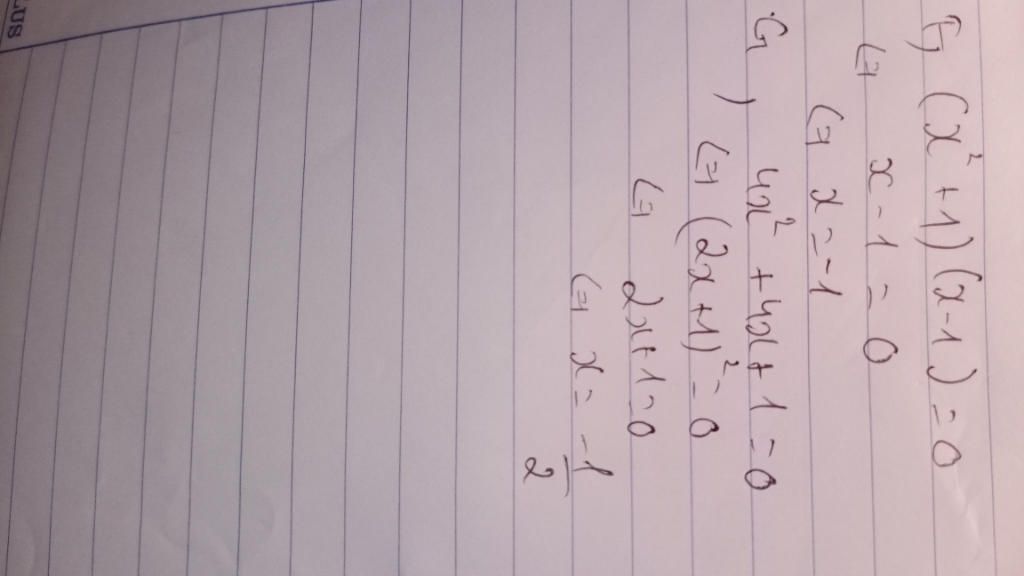 (x² + 1)(x - 1) = 0
⇔ x - 1 = 0
⇔ x = -1
4x² + 4x + 1 = 0
⇔ (2x + 1)² = 0
⇔ 2x + 1 = 0
⇔ x = -1/2